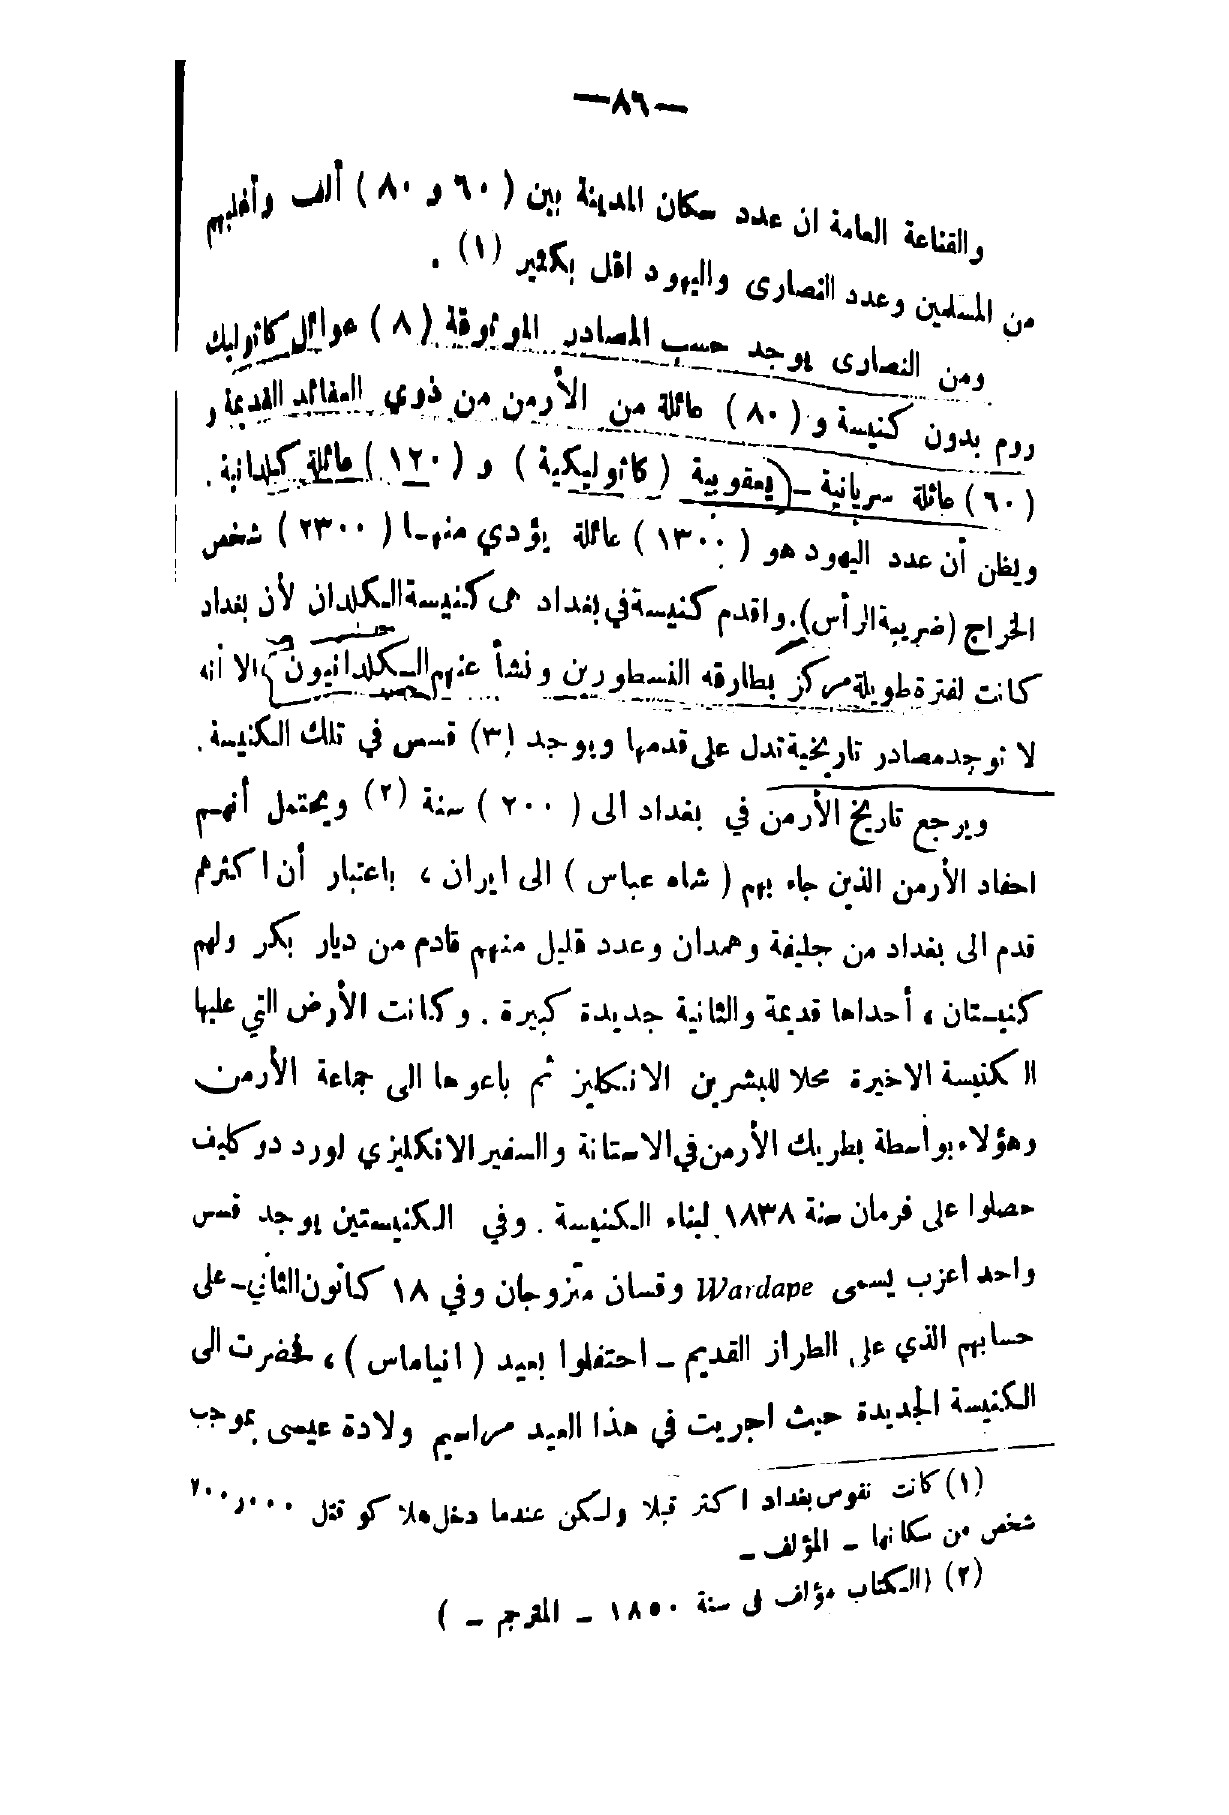 —٨٦—
والقناعة العامة ان عدد سكان المدينة بين ( ٦٠ و ٨٠ ) ألف وأغلبهم
من المسلمين وعدد النصارى واليهود اقل بكثير (١) .
ومن النصارى يوجد حسب المصادر الموثوقة ( ٨ ) عوائل كاثوليك
روم بدون كنيسة و ( ٨٠ ) عائلة من الأرمن من ذوي العقائد القديمة و
( ٦٠ ) عائلة سريانية – يعقوبية ( كاثوليكية ) و ( ١٢٠ ) عائلة كلدانية .
ويظن أن عدد اليهود هو ( ١٣٠٠ ) عائلة يؤدي منهـا ( ٢٣٠٠ ) شخص
الخراج (ضريبة الرأس). واقدم كنيسة في بغداد هى كنيسة الكلدان لأن بغداد
كانت لفترة طويلة مركز بطارقه النسطورين ونشأ عنهم الكلدانيون الا أنه
لا توجد مصادر تاريخية تدل على قدمها ويوجد (٣) قسس في تلك الكنيسة .
ويرجع تاريخ الأرمن في بغداد الى ( ٢٠٠ ) سنة (٢) ويحتمل أنهـم
احفاد الأرمن الذين جاء بهم ( شاه عباس ) الى ايران ، باعتبار أن اكثرهم
قدم الى بغداد من جليفة وهمدان وعدد قليل منهم قادم من ديار بكر ولهم
كنيستان ، أحداها قديمة والثانية جديدة كبيرة . وكانت الأرض التي عليها
الكنيسة الاخيرة محلا للمبشرين الانكليز ثم باعوها الى جماعة الأرمن
وهؤلاء بواسطة بطريك الأرمن في الاستانة والسفير الانكليزي لورد دوكليف
حصلوا على فرمان سنة ١٨٣٨ لبناء الكنيسة . وفي الكنيستين يوجد قسس
واحد اعزب يسمى Wardape وقسان متزوجان وفي ١٨ كانون الثاني – على
حسابهم الذي على الطراز القديم – احتفلوا بعيد ( انياماس ) ، فحضرت الى
الكنيسة الجديدة حيث اجريت في هذا العيد مراسيم ولادة عيسى بموجب
(١) كانت نفوس بغداد اكثر قبلا ولكن عندما دخل هلاكو قتل ٢٠٠ر٠٠٠
شخص من سكانها – المؤلف –
(٢) (الكتاب مؤلف في سنة ١٨٥٠ – المترجم – )